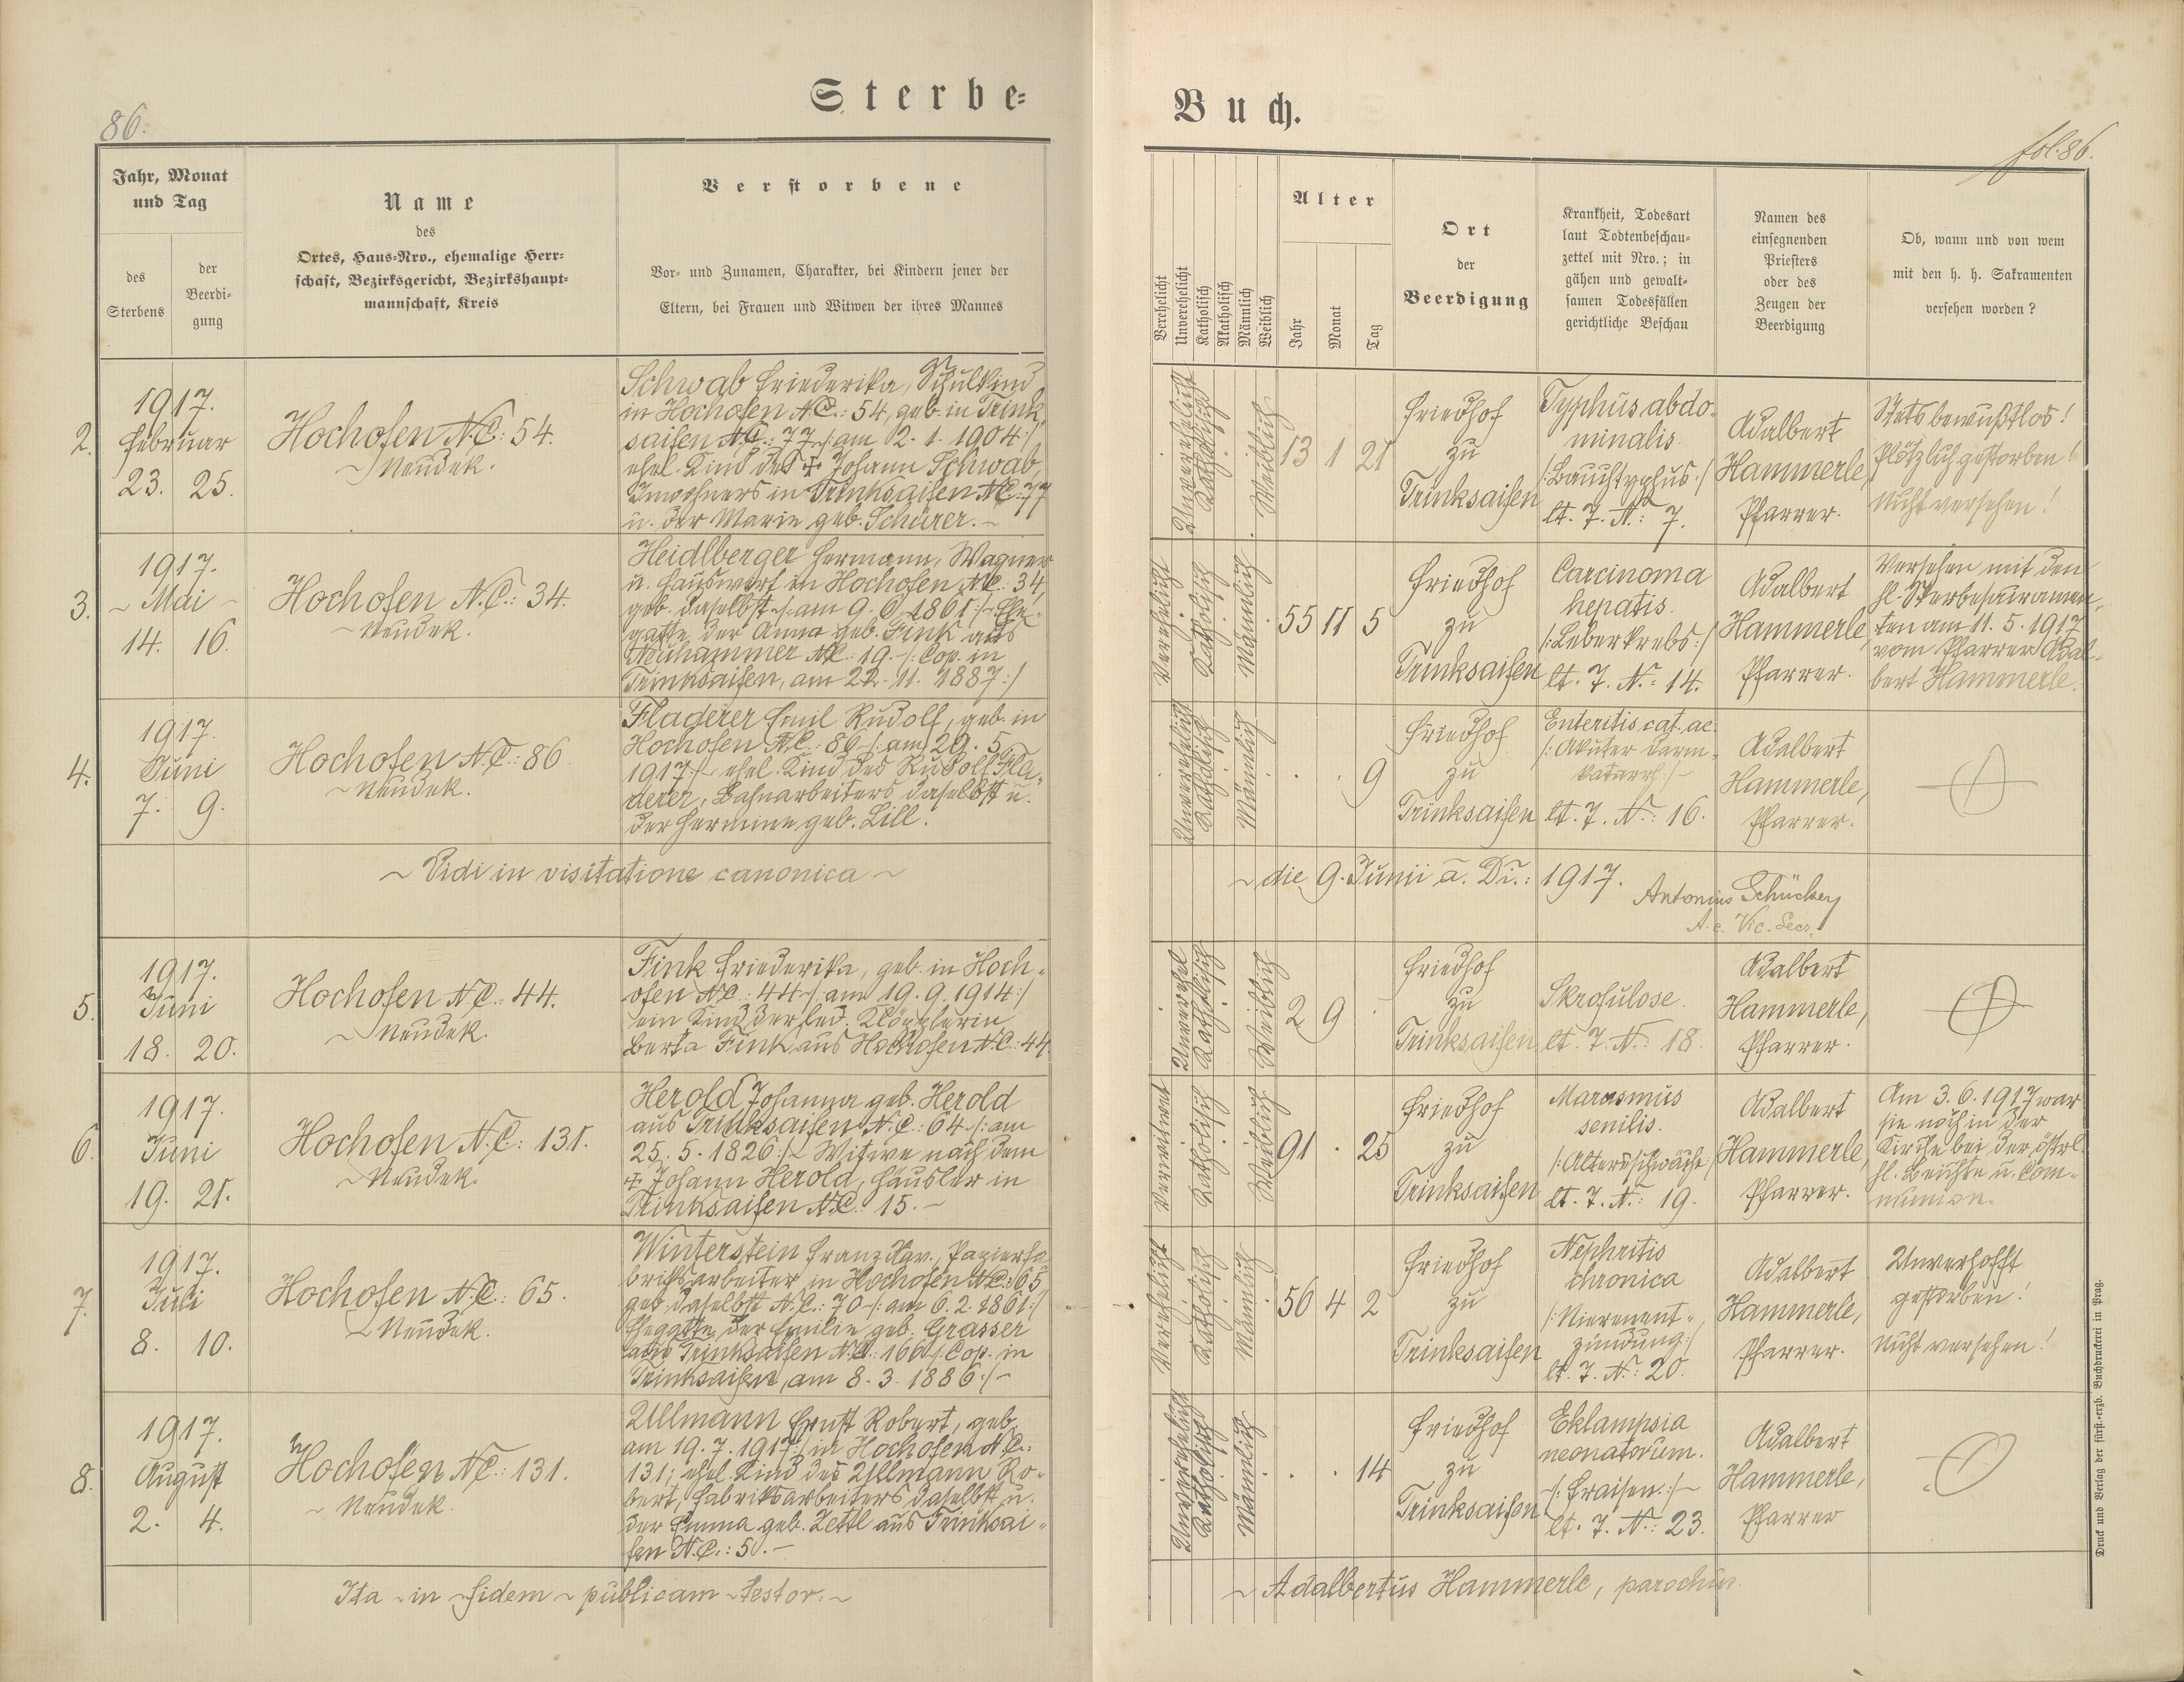 86.
Sterbe-
Jahr, Monat
und Tag
des
Sterbens
der
Beerdi-
gung
Name
des
Ortes, Haus-Nro., ehemalige Herr-
schaft, Bezirksgericht, Bezirkshaupt-
mannschaft, Kreis
Verstorbene
Vor- und Zunamen, Charakter, bei Kindern jener der
Eltern, bei Frauen und Witwen der ihres Mannes
2.
1917.
Februar
23. 25.
Hochofen N.C.: 54.
~ Neudek.
Schwab Friederika, Schulkind
in Hochofen N.C.: 54, geb. in Trink
saifen N.C.: 77 /: am 2. 1. 1904 :/
ehel. Kind des ‡ Johann Schwab,
Inwohners in Trinksaifen N.C.: 77
u. der Marie geb. Schürer. ~
3.
1917.
~ Mai ~
14. 16.
Hochofen N.C.: 34.
~ Neudek.
Heidlberger Hermann, Wagner
u. Hauswirt in Hochofen N.C.: 34,
geb. daselbst /: am 9. 6. 1861 :/ Ehe-
gatte der Anna geb. Fink aus
Neuhammer N.C.: 19. /: Cop. in
Trinksaifen, am 22. 11. 1887 :/
4.
1917.
Juni
7. 9.
Hochofen N.C.: 86
~ Neudek.
Fladerer Emil Rudolf, geb. in
Hochofen N.C.: 86 /: am 29. 5.
1917 :/ ehel. Kind des Rudolf Fla-
derer, Bahnarbeiters daselbst u.
der Hermine geb. Lill.
~ Vidi in visitatione canonica ~
5.
1917.
Juni
18. 20.
Hochofen N.C.: 44.
~ Neudek.
Fink Friederika, geb. in Hoch-
ofen N.C.: 44 /: am 19. 9. 1914 :/
ein Kind der led. Klöpplerin
Berta Fink aus Hochofen N.C.: 44
6.
1917.
Juni
19. 21.
Hochofen N.C.: 131.
~ Neudek.
Herold Johanna geb. Herold
aus Trinksaifen N.C.: 64 /: am
25. 5. 1826 :/ Witwe nach dem
‡ Johann Herold, Häusler in
Trinksaifen N.C.: 15. ~
7.
1917.
Juli
8. 10.
Hochofen N.C.: 65.
~ Neudek.
Winterstein Franz Xav., Papierfa-
briksarbeiter in Hochofen N.C.: 65
geb. daselbst N.C.: 70 /: am 6. 2. 1861 :/
Ehegatte der Emilie geb. Grasser
aus Trinksaifen N.C.: 166 /: Cop. in
Trinksaifen, am 8. 3. 1886 :/ ~
8.
1917.
August
2. 4.
Hochofen N.C.: 131.
~ Neudek.
Ullmann Ernst Robert, geb.
am 19. 7. 1917 :/ in Hochofen N.C.:
131; ehel. Kind des Ullmann Ro-
bert, Fabriksarbeiters daselbst u.
der Emma geb. Zettl aus Trinksai-
fen N.C.: 50. ~
Ita ~ in ~ fidem ~ publicam ~ testor: ~
Buch.
fol: 86.
Verehelicht
Unverehelicht
Katholisch
Akatholisch
Männlich
Weiblich
Alter
Jahr
Monat
Tag
Ort
der
Beerdigung
Krankheit, Todesart
laut Todtenbeschau-
zettel mit Nro.; in
gähen und gewalt-
samen Todesfällen
gerichtliche Beschau
Namen des
einsegnenden
Priesters
oder des
Zeugen der
Beerdigung
Ob, wann und von wem
mit den h. h. Sakramenten
versehen worden?
Unverehelicht
Katholisch
Weiblich
13 1 21
Friedhof
zu
Trinksaifen
Typhus abdo-
minalis.
/: Bauchtyphus :/
lt. T. N.: 7.
Adalbert
Hammerle,
Pfarrer.
Stets bewußtlos!
Plötzlich gestorben!
Nicht versehen!
Verehelicht
Katholisch
Männlich
55 11 5
Friedhof
zu
Trinksaifen
Carcinoma
hepatis.
/: Leberkrebs :/
lt. T. N.: 14.
Adalbert
Hammerle,
Pfarrer.
Versehen mit den
hl. Sterbesakramen-
ten am 11. 5. 1917
vom Pfarrer Adal-
bert Hammerle.
Unverehelicht
Katholisch
Männlich
. . 9
Friedhof
zu
Trinksaifen
Enteritis cat. ac.
/: Akuter Darm-
katarrh :/ ~
lt. T. N.: 16.
Adalbert
Hammerle,
Pfarrer.
~ die 9. Junii a. Di.: 1917.
Antonius Schücker
A. e. Vic. Secr.
Unverehel
Katholisch
Weiblich
2 9 .
Friedhof
zu
Trinksaifen
Skrofulose.
lt. T. N.: 18.
Adalbert
Hammerle,
Pfarrer.
Verwitwet
Katholisch
Weiblich
91 . 25
Friedhof
zu
Trinksaifen
Marasmus
senilis.
/: Altersschwäche
lt. T. N.: 19.
Adalbert
Hammerle,
Pfarrer.
Am 3. 6. 1917 war
sie noch in der
Kirche bei der österl.
hl. Beichte u. Com-
munion.
Verehelicht
Katholisch
Männlich
56 4 2
Friedhof
zu
Trinksaifen
Nephritis
chronica
/: Nierenent-
zündung :/
lt. T. N.: 20.
Adalbert
Hammerle,
Pfarrer.
Unverhofft
gestorben!
Nicht versehen!
Unverehelicht
Katholisch
Männlich
. . 14
Friedhof
zu
Trinksaifen
Eklampsia
neonatorum.
/: Fraisen :/ ~
lt. T. N.: 23.
Adalbert
Hammerle,
Pfarrer
~ Adalbertus Hammerle, parochus.
Druck und Verlag der fürst.-erzb. Buchdruckerei in Prag.